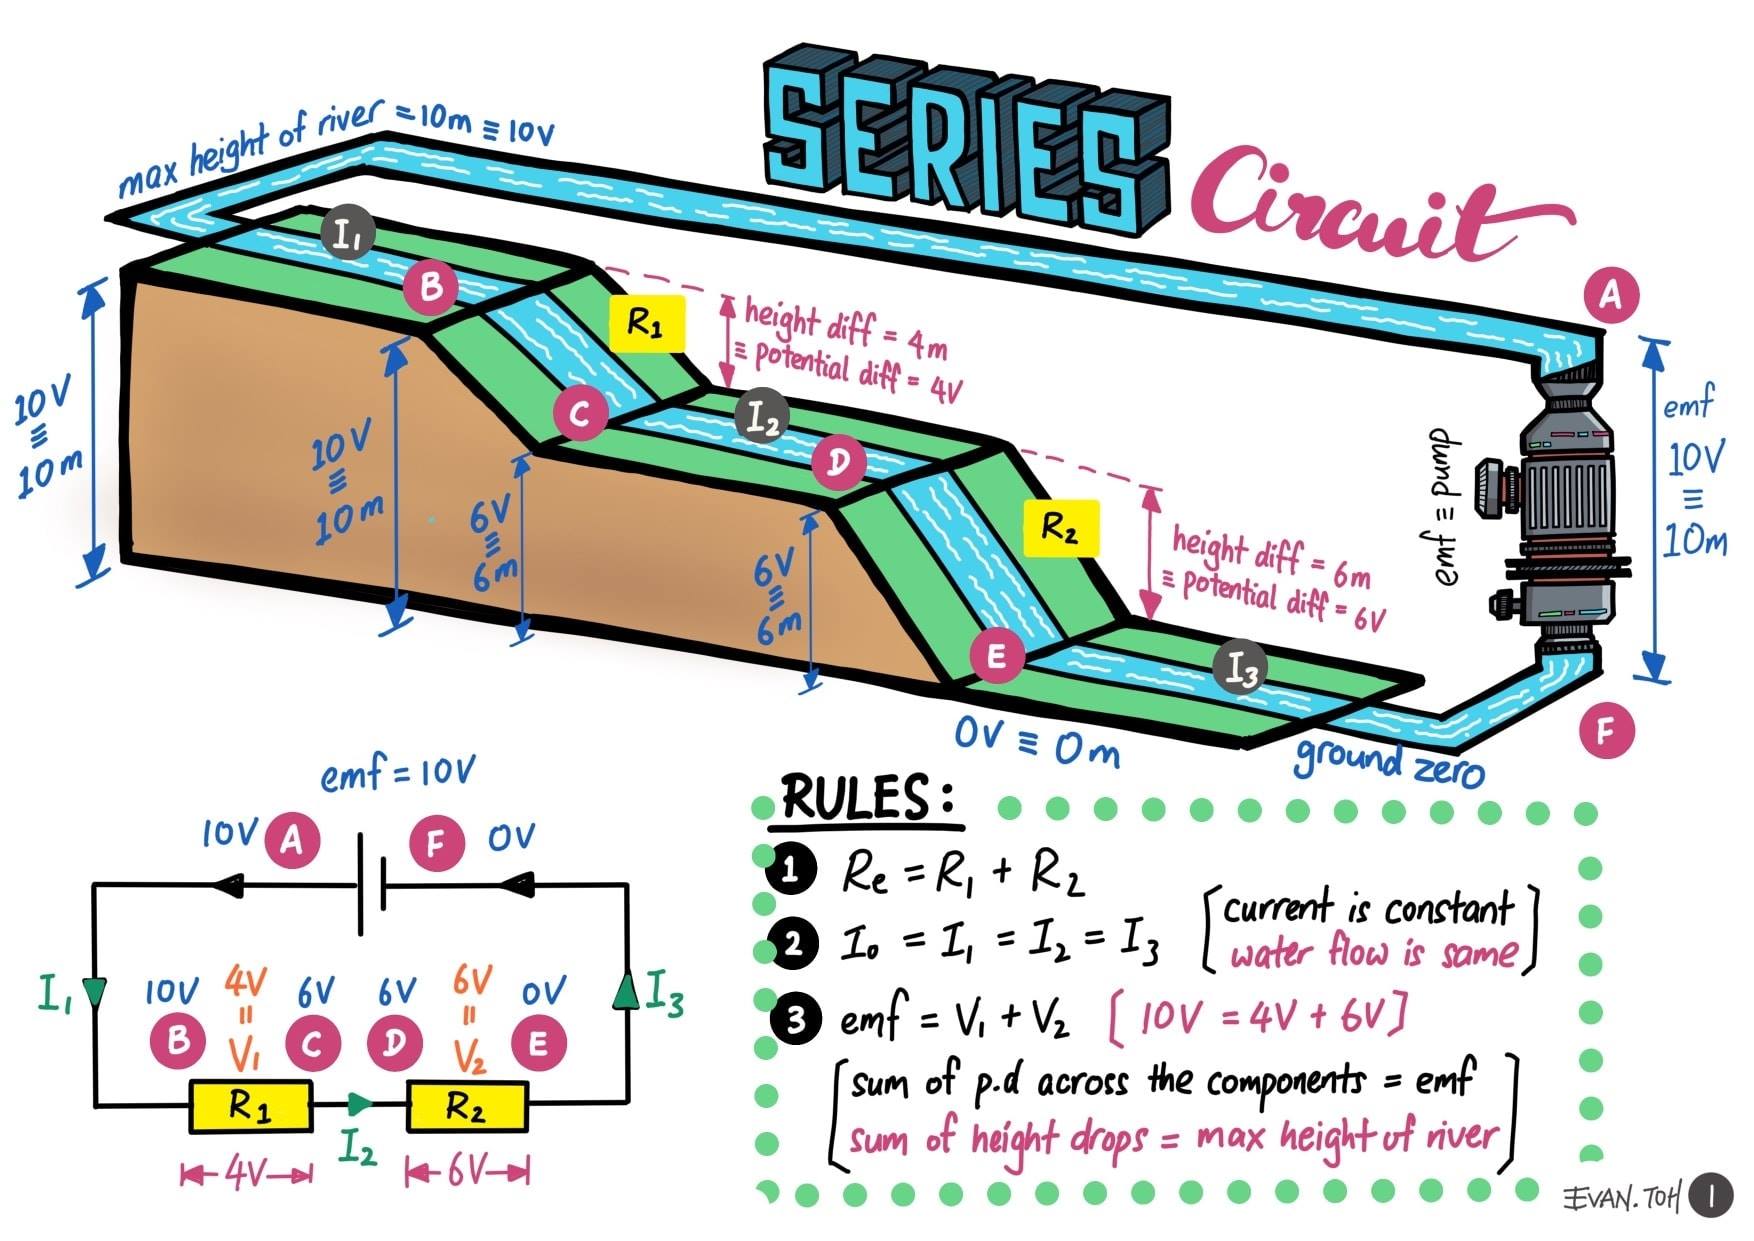 SERIES
Circuit
max height of river = 10m ≡ 10V
I₁
B
R₁
A
height diff = 4m
≡ potential diff = 4V
C
I₂
D
R₂
height diff = 6m
≡ potential diff = 6V
E
I₃
F
10V
≡
10m
10V
≡
10m
6V
≡
6m
6V
≡
6m
emf ≡ pump
emf
10V
≡
10m
0V ≡ 0m
ground zero
emf = 10V
10V A
F 0V
I₁
10V 4V 6V 6V 6V 0V
= =
B V₁ C D V₂ E
I₃
R₁
R₂
I₂
4V
6V
RULES:
1 Re = R₁ + R₂
2 I₀ = I₁ = I₂ = I₃
[current is constant
water flow is same]
3 emf = V₁ + V₂ [10V = 4V + 6V]
[sum of p.d across the components = emf
sum of height drops = max height of river]
EVAN.TOH 1